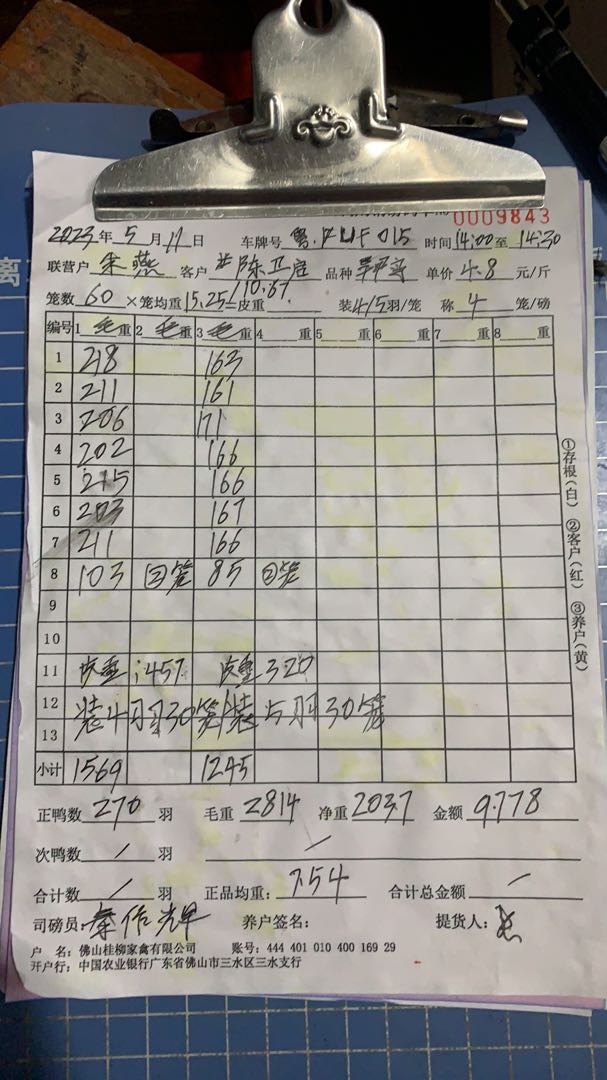 0009843
2023年5月11日 车牌号 粤. 015 时间14:00至14:30
联营户 朱燕 客户 陈卫启 品种 单价4.8元/斤
笼数60×笼均重15.25/10.67=皮重 装4/5羽/笼 称4笼/磅
编号 1毛重 2毛重 3毛重 4 重 5 重 6 重 7 重 8 重
1 218 163
2 211 161
3 206 171
4 202 166
5 215 166
6 203 167
7 211 166
8 103 ②笼 85 ②笼
9
10
11 皮重:457 皮重320
12 装4羽30笼 装5羽30笼
13
小计 1569 1245
正鸭数270羽 毛重2814 净重2037 金额9778
次鸭数/羽 /
合计数/羽 正品均重:7.54 合计总金额/
司磅员:秦作辉 养户签名: 提货人:
户 名:佛山桂柳家禽有限公司 账号:444 401 010 400 169 29
开户行:中国农业银行广东省佛山市三水区三水支行
①存根(白) ②客户(红) ③养户(黄)